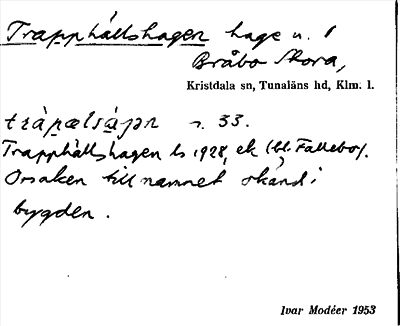 Trapphällshagen hage u. 1
Bråbo Stora,
Kristdala sn, Tunaläns hd, Klm. l.
s. 33.
Trapphällshagen ls 1928, ek (bl. Fallebo).
Orsaken till namnet okänd i
bygden.
Ivar Modéer 1953